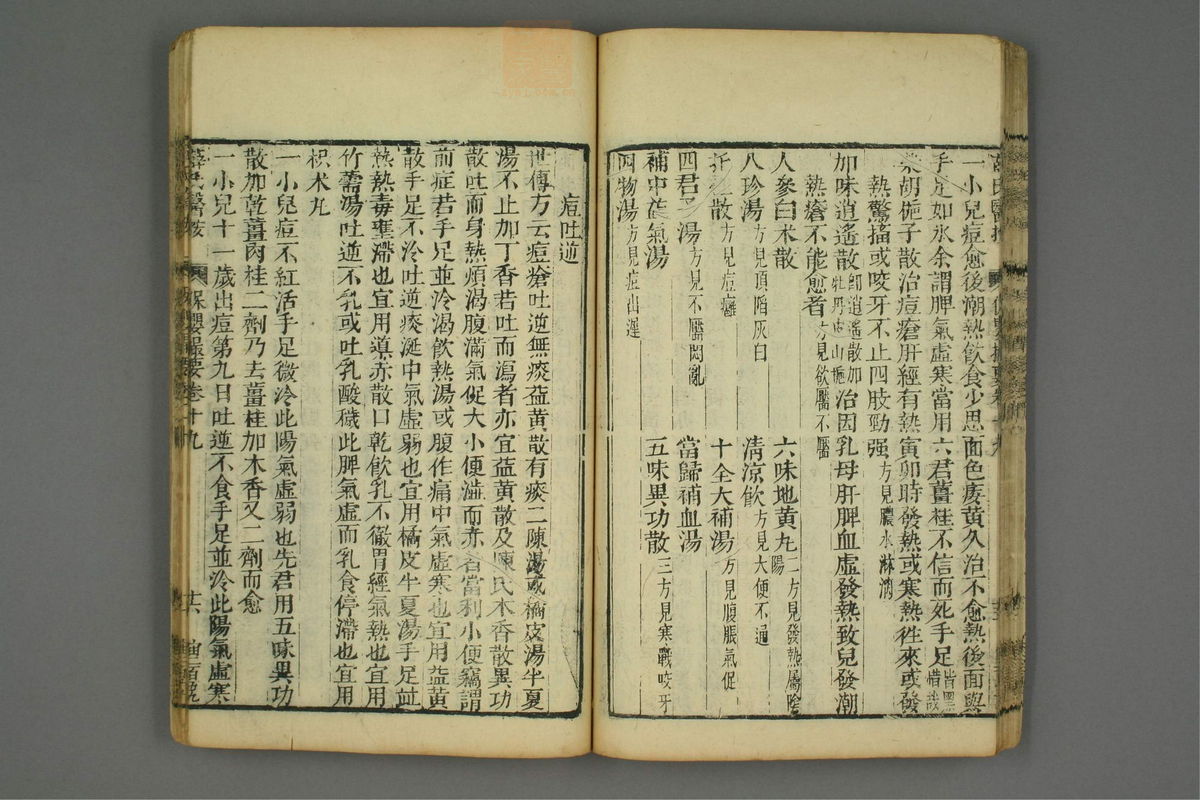 一小兒痘愈後潮熱飲食少思面色痿黃久治不愈熱後面與
手足如氷余謂脾氣虛寒當用六君薑桂不信而死手足皆黑惜哉
柴胡梔子散治痘瘡肝經有熱寅卯時發熱或寒熱徃來或發
熱驚搐或咬牙不止四肢勁强方見膿水淋漓
加味逍遙散卽逍遙散加牡丹皮山梔治因乳母肝脾血虛發熱致兒發潮
熱瘡不能愈者方見欲靨不靨
人參白朮散
六味地黃丸二方見發熱屬陰陽
八珍湯方見頂陷灰白
清涼飲方見大便不通
托裏散方見痘癰
十全大補湯方見腹脹氣促
四君子湯方見不靨悶亂
當歸補血湯
補中益氣湯
五味異功散三方見寒戰咬牙
四物湯方見痘出遲
痘吐逆
世傳方云痘瘡吐逆無痰益黃散有痰二陳湯或橘皮湯半夏
湯不止加丁香若吐而瀉者亦宜益黃散及陳氏木香散異功
散吐而身熱煩渴腹滿氣促大小便澁而赤者當利小便竊謂
前症若手足並冷渴飲熱湯或腹作痛中氣虛寒也宜用益黃
散手足不冷吐逆痰涎中氣虛弱也宜用橘皮半夏湯手足並
熱熱毒壅滯也宜用導赤散口乾飲乳不徹胃經氣熱也宜用
竹茹湯吐逆不乳或吐乳酸穢此脾氣虛而乳食停滯也宜用
枳朮丸
一小兒痘不紅活手足微冷此陽氣虛弱也先君用五味異功
散加乾薑肉桂二劑乃去薑桂加木香又二劑而愈
一小兒十一歲出痘第九日吐逆不食手足並冷此陽氣虛寒
薛氏醫按 保嬰撮要卷十九 廿六